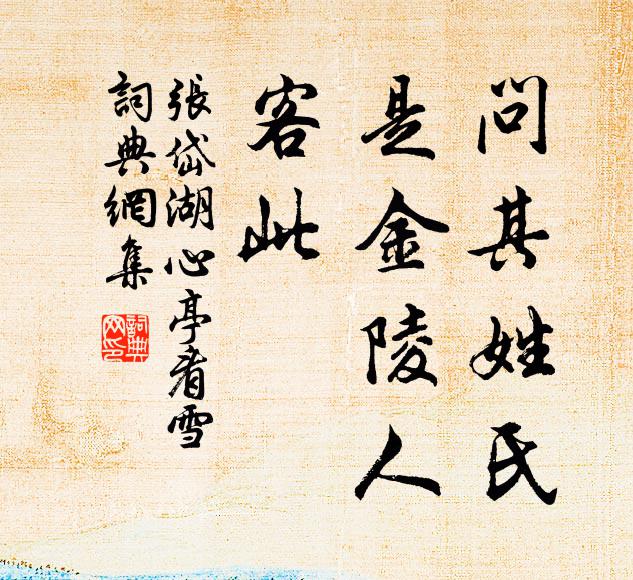 問其姓氏
是金陵人
客此
張岱湖心亭看雪
詞典網集
詞典
网印